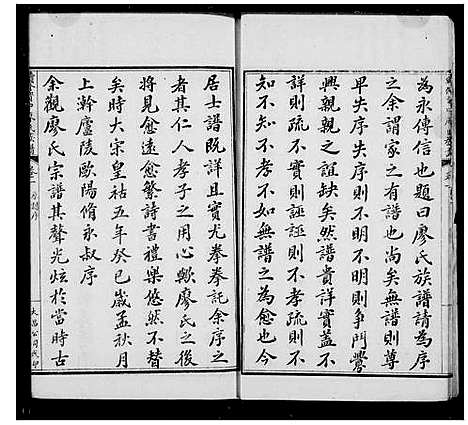 為永傳信也題曰廖氏族譜請為序
之余謂家之有譜也尚矣無譜則尊
卑失序失序則不明則爭鬥釁
興親親之誼缺矣然譜詳實蓋不
詳則踈不實則誣誣則不孝踈則不
知不知不孝不如無譜之為愈也今
居士譜既詳且實尤拳拳託余序之
者其仁人孝子之用心歟廖氏之後
將見愈遠愈繁詩書禮樂悠然不替
矣時大宋皇祐五年癸巳歲孟秋月
上澣廬陵歐陽脩永叔序
余觀廖氏宗譜其聲光炫於當時古
大昌公司代印